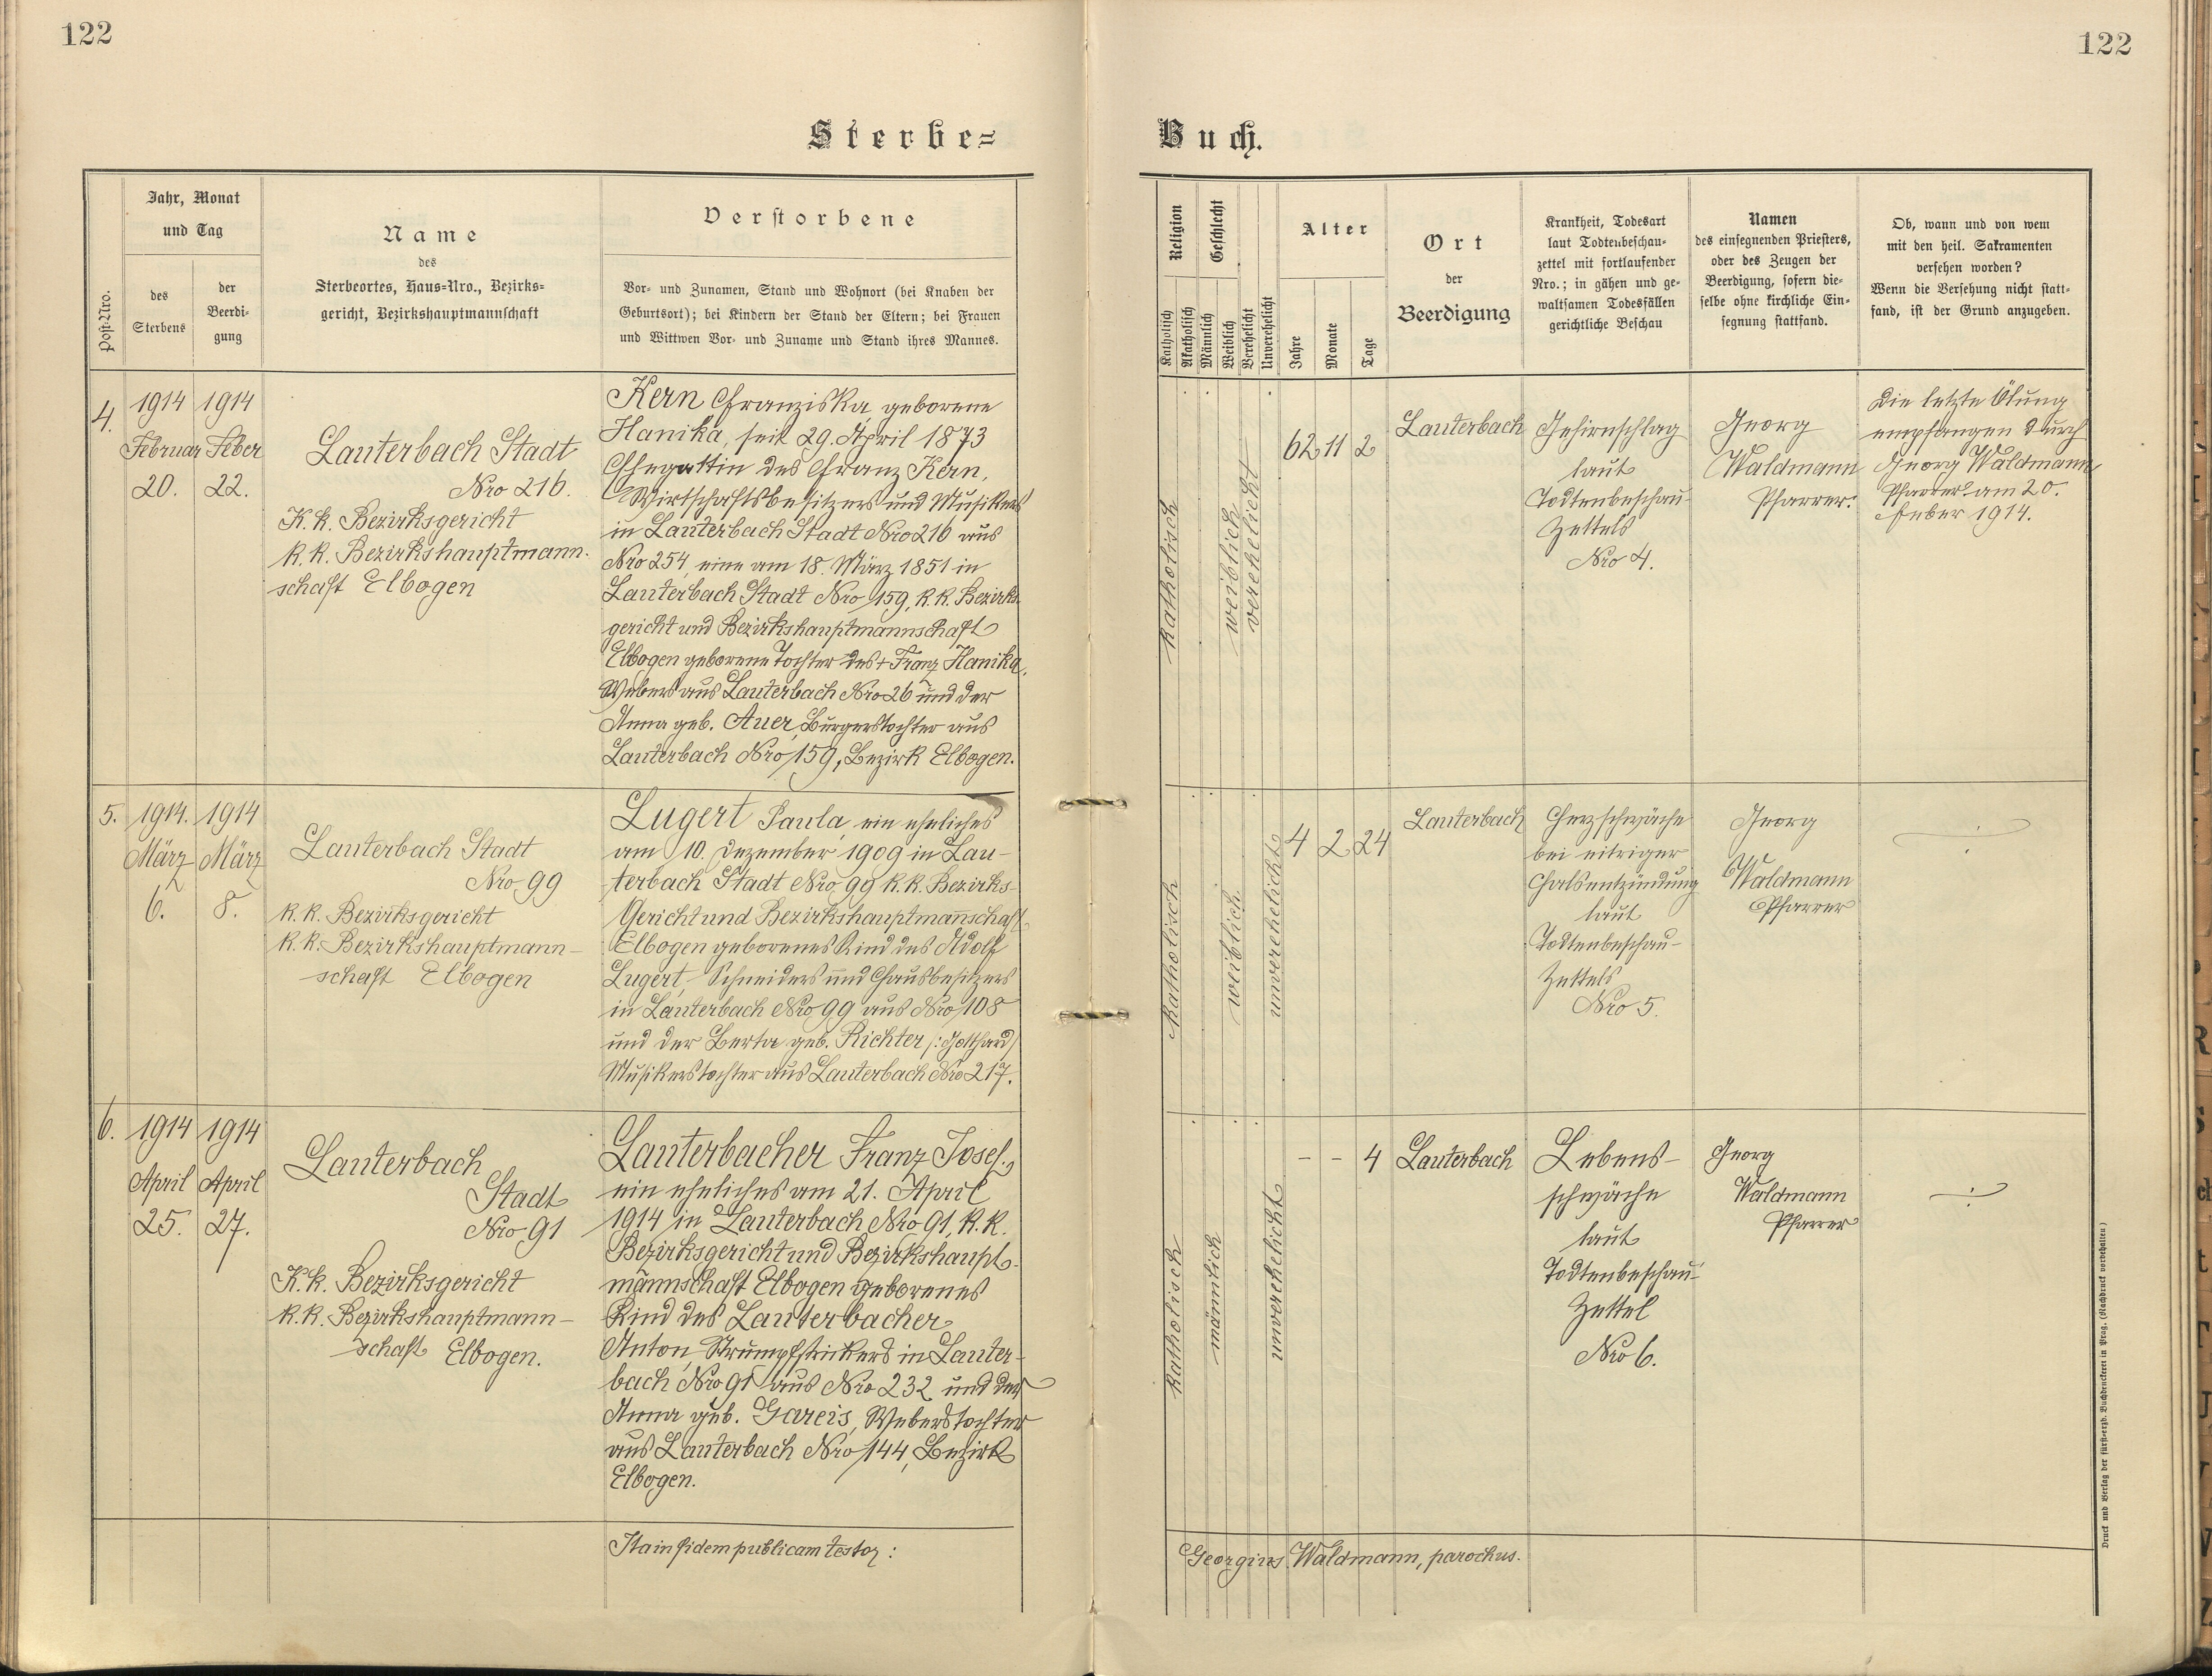 122
122
Sterbe=
Buch.
Post-Nro.
Jahr, Monat
und Tag
des
Sterbens
der
Beerdi-
gung
Name
des
Sterbeortes, Haus=Nro., Bezirks=
gericht, Bezirkshauptmannschaft
Verstorbene
Vor- und Zunamen, Stand und Wohnort (bei Knaben der
Geburtsort); bei Kindern der Stand der Eltern; bei Frauen
und Wittwen Vor- und Zuname und Stand ihres Mannes.
Religion
Katholisch
Akatholisch
Geschlecht
Männlich
Weiblich
Verehelicht
Unverehelicht
Alter
Jahre
Monate
Tage
Ort
der
Beerdigung
Krankheit, Todesart
laut Todtenbeschau-
zettel mit fortlaufender
Nro.; in gähen und ge-
waltsamen Todesfällen
gerichtliche Beschau
Namen
des einsegnenden Priesters,
oder des Zeugen der
Beerdigung, sofern die-
selbe ohne kirchliche Ein-
segnung stattfand.
Ob, wann und von wem
mit den heil. Sakramenten
versehen worden?
Wenn die Versehung nicht statt-
fand, ist der Grund anzugeben.
4.
1914
Februar
20.
1914
Feber
22.
Lauterbach Stadt
Nro 216.
K.k. Bezirksgericht
k.k. Bezirkshauptmann-
schaft Elbogen
Kern Franziska, geborene
Hanika, seit 29. April 1873
Ehegattin des Franz Kern,
Wirtschaftsbesitzers und Musikers
in Lauterbach Stadt Nro 216 aus
Nro 254, eine am 18. März 1851 in
Lauterbach Stadt Nro 159, k.k. Bezirks-
gericht und Bezirkshauptmannschaft
Elbogen geborene Tochter des + Franz Hanika,
Webers aus Lauterbach Nro 26 und der
Anna geb. Auer, Bürgerstochter aus
Lauterbach Nro 159, Bezirk Elbogen.
katholisch
weiblich
verehelicht
62 11 2
Lauterbach
Gehirnschlag
laut
Todtenbeschau-
Zettels
Nro 4.
Georg
Waldmann
Pfarrer.
Die letzte Ölung
empfangen durch
Georg Waldmann
Pfarrer am 20.
Feber 1914.
5.
1914.
März
6.
1914
März
8.
Lauterbach Stadt
Nro 99
k.k. Bezirksgericht
k.k. Bezirkshauptmann-
schaft Elbogen
Lugert Paula, ein eheliches
am 10. Dezember 1909 in Lau-
terbach Stadt Nro 99 k.k. Bezirks-
Gericht und Bezirkshauptmannschaft
Elbogen geborenes Kind des Adolf
Lugert, Schneiders und Hausbesitzers
in Lauterbach Nro 99 aus Nro 108
und der Berta geb. Richter /:Gotthard/
Musikerstochter aus Lauterbach Nro 217.
katholisch
weiblich
unverehelicht
4 2 24
Lauterbach
Herzschwäche
bei eitriger
Halsentzündung
laut
Todtenbeschau-
Zettels
Nro 5.
Georg
Waldmann
Pfarrer
6.
1914
April
25.
1914
April
27.
Lauterbach
Stadt
Nro 91
K.k. Bezirksgericht
k.k. Bezirkshauptmann-
schaft Elbogen.
Lauterbacher Franz Josef,
ein eheliches am 21. April
1914 in Lauterbach Nro 91, k.k.
Bezirksgericht und Bezirkshaupt-
mannschaft Elbogen geborenes
Kind des Lauterbacher
Anton, Strumpfstrickers in Lauter-
bach Nro 91 aus Nro 232 und der
Anna geb. Gareis, Weberstochter
aus Lauterbach Nro 144, Bezirk
Elbogen.
katholisch
männlich
unverehelicht
- - 4
Lauterbach
Lebens-
schwäche
laut
Todtenbeschau-
Zettel
Nro 6.
Georg
Waldmann
Pfarrer
Ita in fidem publicam testor:
Georgius Waldmann, parochus.
Druck und Verlag der fürst-erzb. Buchdruckerei in Prag. (Nachdruck vorbehalten)